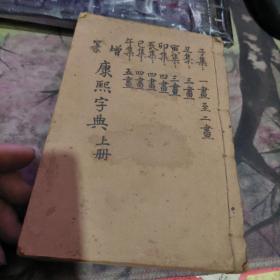 子集 一畫至二畫
丑集 三畫
寅集 三畫
卯集 四畫
辰集 四畫
巳集 四畫
午集 五畫
增篆康熙字典上册